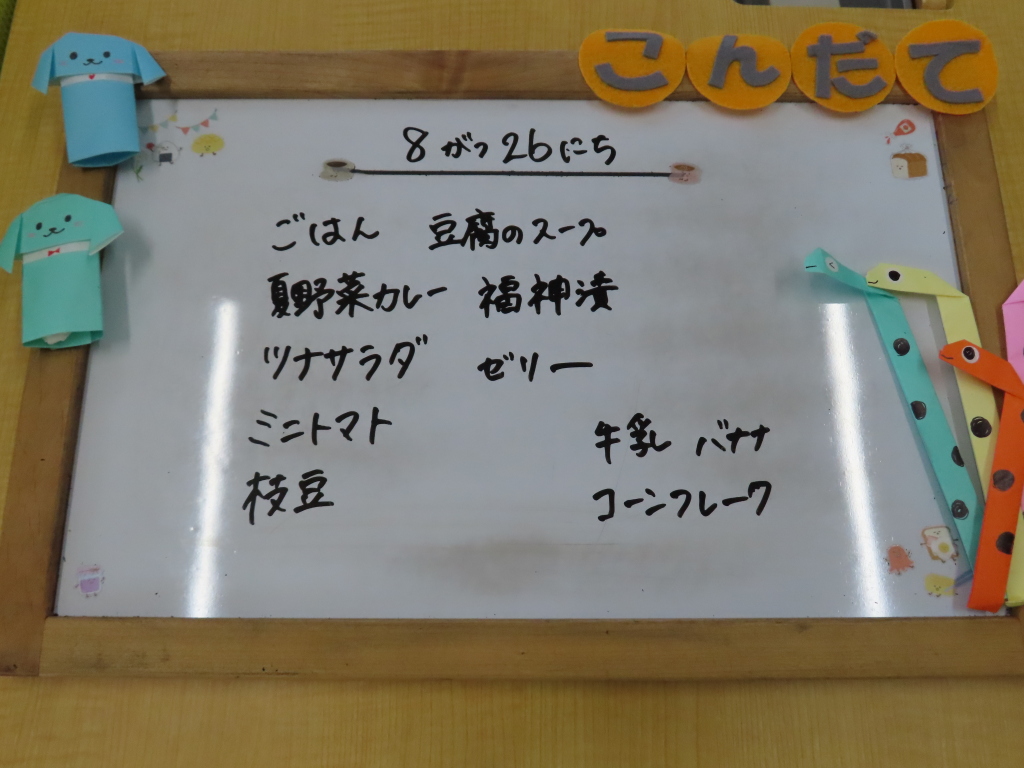 こんだて
8がつ26にち
ごはん 豆腐のスープ
夏野菜カレー 福神漬
ツナサラダ ゼリー
ミニトマト
枝豆
牛乳 バナナ
コーンフレーク